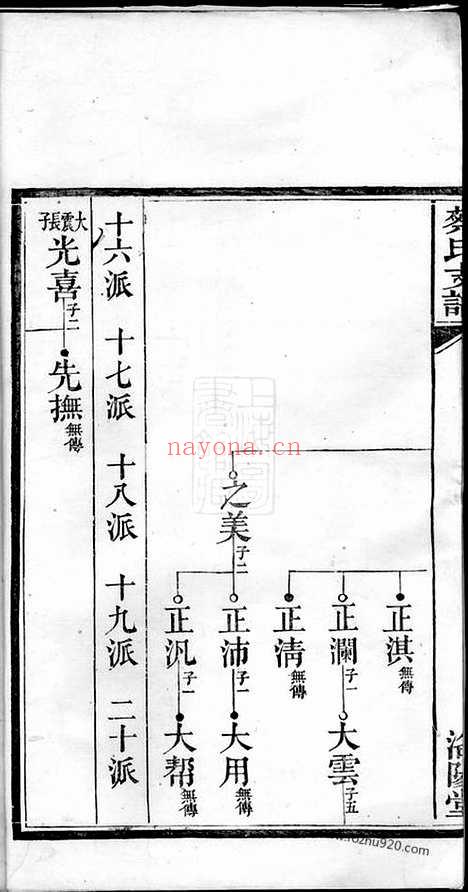 蔡氏支譜
濟陽堂
正淇 無傳
正瀾 子一
大雲 子五
正清 無傳
之美 子二
正沛 子一
大用 無傳
正汎 子一
大帮 無傳
十六派 十七派 十八派 十九派 二十派
大震長子
光喜 子二
先撫 無傳
nayona.cn
www.fozhu920.com